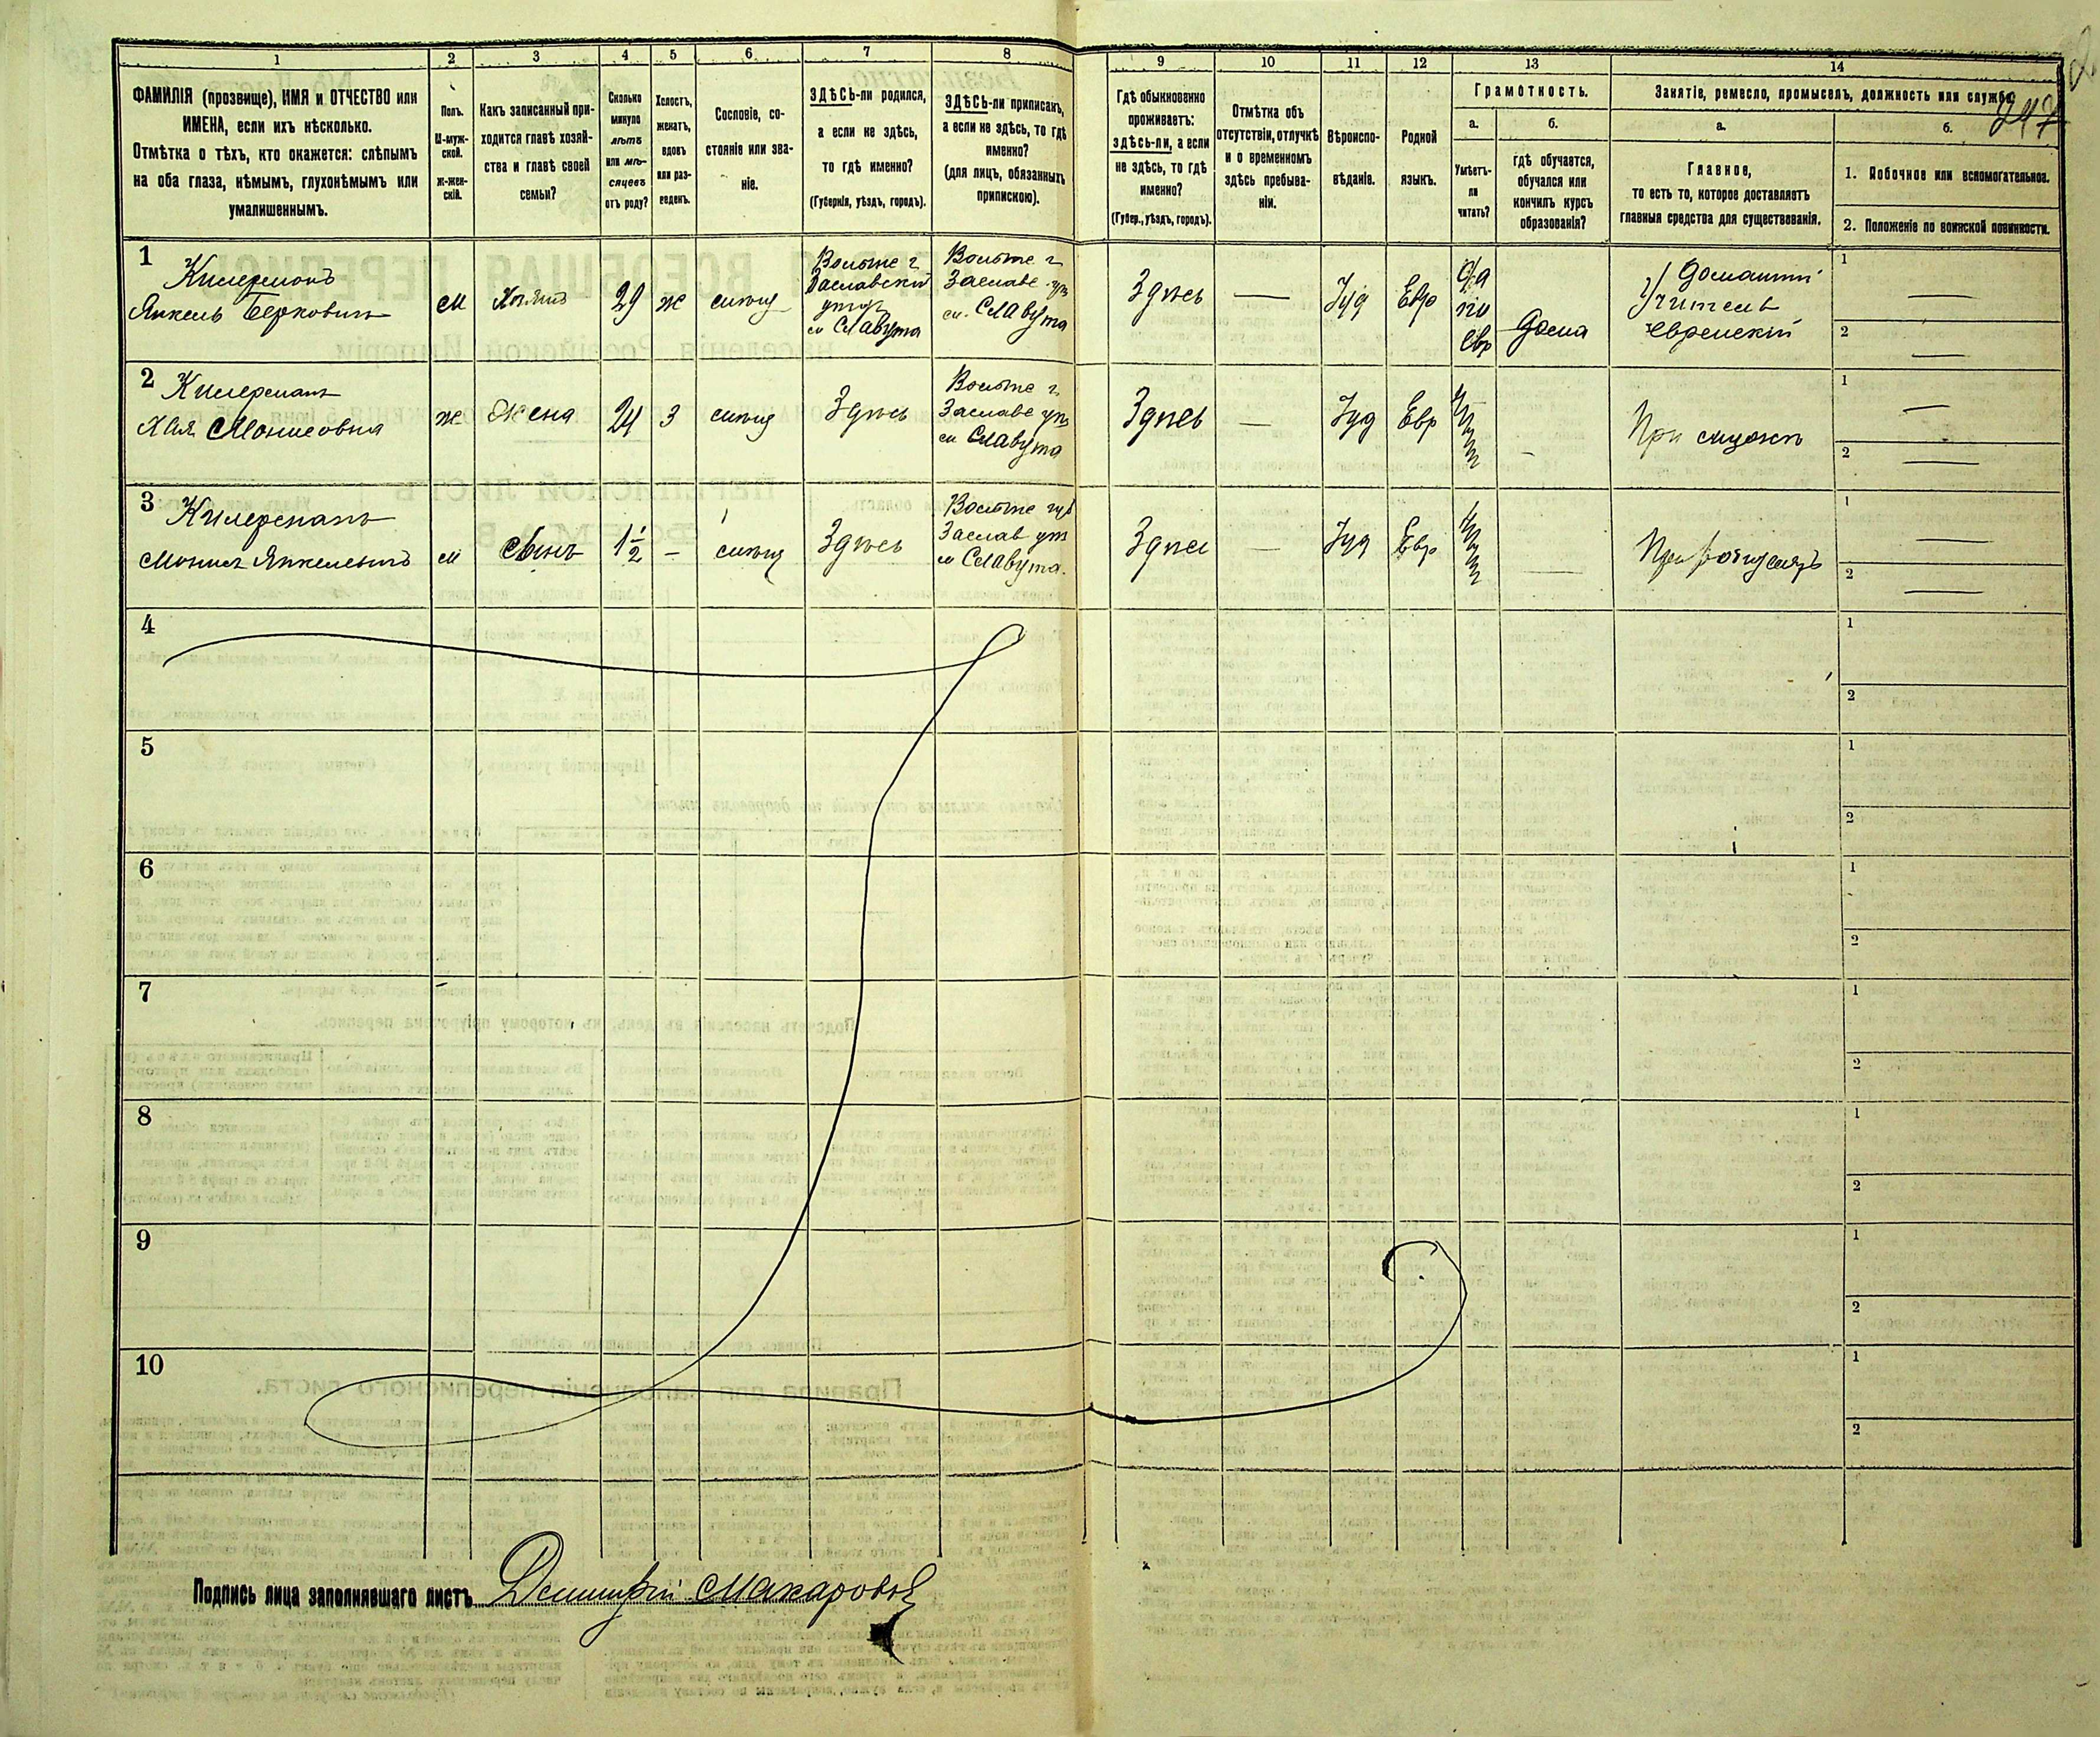 1 2 3 4 5 6 7 8 9 10 11 12 13 14
ФАМИЛІЯ (прозвище), ИМЯ и ОТЧЕСТВО или
ИМЕНА, если ихъ нѣсколько.
Отмѣтка о тѣхъ, кто окажется: слѣпымъ
на оба глаза, нѣмымъ, глухонѣмымъ или
умалишеннымъ.
Полъ.
М-муж-
ской.
Ж-жен-
скій.
Какъ записанный при-
ходится главѣ хозяй-
ства и главѣ своей
семьи?
Сколько
минуло
лѣтъ
или мѣ-
сяцевъ
отъ роду?
Холостъ,
женатъ,
вдовъ
или раз-
веденъ.
Сословіе, со-
стояніе или зва-
ніе.
ЗДѢСЬ-ли родился,
а если не здѣсь,
то гдѣ именно?
(Губернія, уѣздъ, городъ).
ЗДѢСЬ-ли приписанъ,
а если не здѣсь, то гдѣ
именно?
(для лицъ, обязанныхъ
припискою).
Гдѣ обыкновенно
проживаетъ:
здѣсь-ли, а если
не здѣсь, то гдѣ
именно?
(Губер., уѣздъ, городъ).
Отмѣтка объ
отсутствіи, отлучкѣ
и о временномъ
здѣсь пребыва-
ніи.
Вѣроиспо-
вѣданіе.
Родной
языкъ.
Грамотность.
а.
Умѣетъ-
ли
читать?
б.
гдѣ обучается,
обучался или
кончилъ курсъ
образованія?
Занятіе, ремесло, промыселъ, должность или служба
247
а.
Главное,
то есть то, которое доставляетъ
главныя средства для существованія.
б.
1. Побочное или вспомогательное.
2. Положеніе по воинской повинности.
1
Янкель Берковичъ
м
29
ж
Заславскій
м Славута
м. Славута
Здѣсь
Іуд
Евр
да
по
евр
дома
Учитель
Еврейскій
1
2
2 Килерманъ
Хая Мошковна
ж
Жена
24
З
Здѣсь
м Славута
Здѣсь
Іуд
Евр
нѣтъ
При мужѣ
1
2
3 Килерманъ
Янкелевичъ
м
Сынъ
1 1/2
Здѣсь
м Славута.
Здѣсь
Іуд
Евр
нѣтъ
При родителяхъ
1
2
4
1
2
5
1
2
6
1
2
7
1
2
8
1
2
9
1
2
10
1
2
Подпись лица заполнявшаго листъ Дмитрій Макаровъ